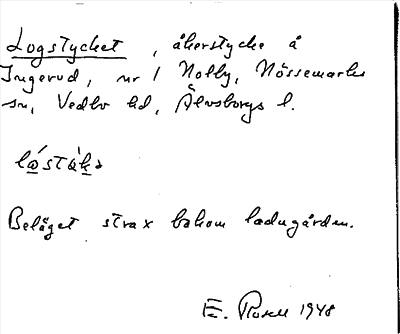 Logstycket, åkerstycke å
Ingerud, nr 1 Nolby, Nössemarks
sn, Vedbo hd, Älvsborgs l.
Beläget strax bakom ladugården.
E. 1948